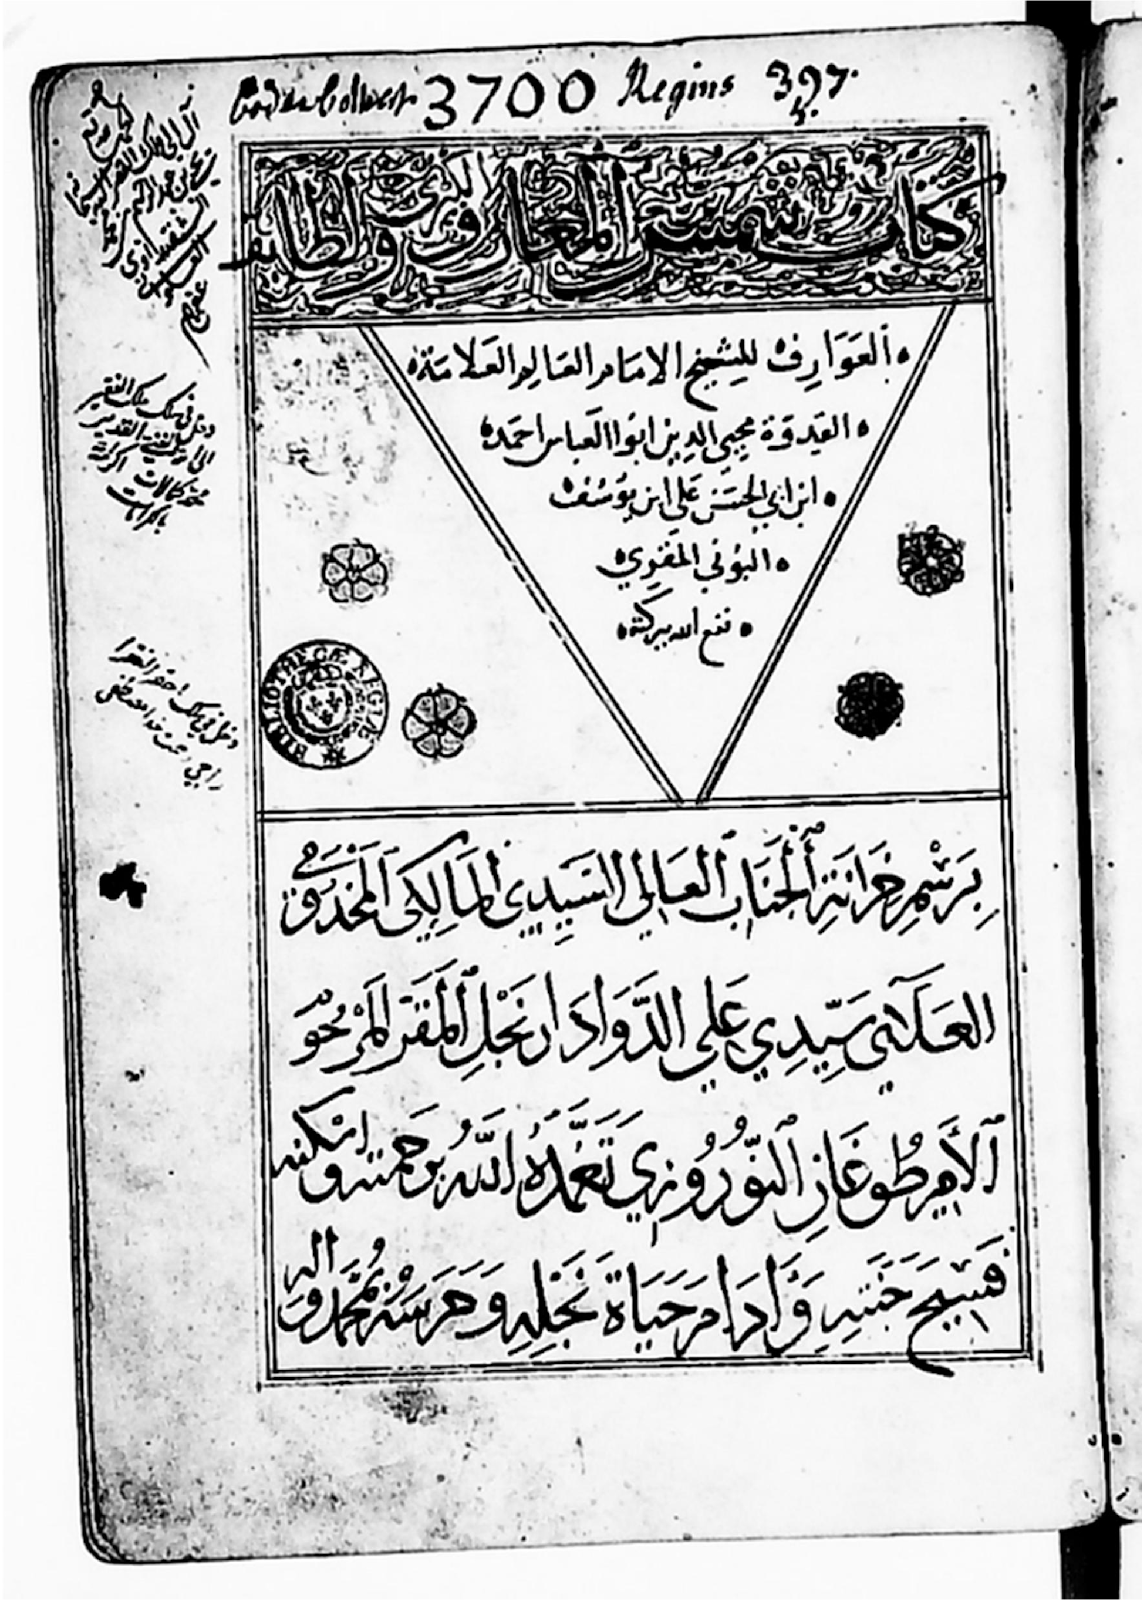 Codex Colbert 3700 Regius 397.
كتاب شمس المعارف ولطايف
العَوَارِف للشيخ الامام العالم العلامة
القدوة محيي الدين ابوا العباس احمد
ابن ابي الحسَن عَلي ابن يوُسُف
البوُني المقري
نفع الله ببركته
بِرَسْمِ خزانَةِ الجنَاب العَالي السَيِدِي المَالِكيِ المَخْدوُمي
العَلآئي سَيِّدِي عَلي الدَّوَادَار نَجْلِ المَقَر المَرْحُوم
الأمير طُوغَان النَّوْرُوزي تَغَمَّدَهُ اللهُ برَحمته واسكنه
فسِيح جَنَتهِ وَأدَامَ حَيَاة نَجْلِهِ وَحَرَسَهُ بمُحَمَّد وَاله
دخل في ملك احقر الفقرا
BIBLIOTHECÆ REGIÆ